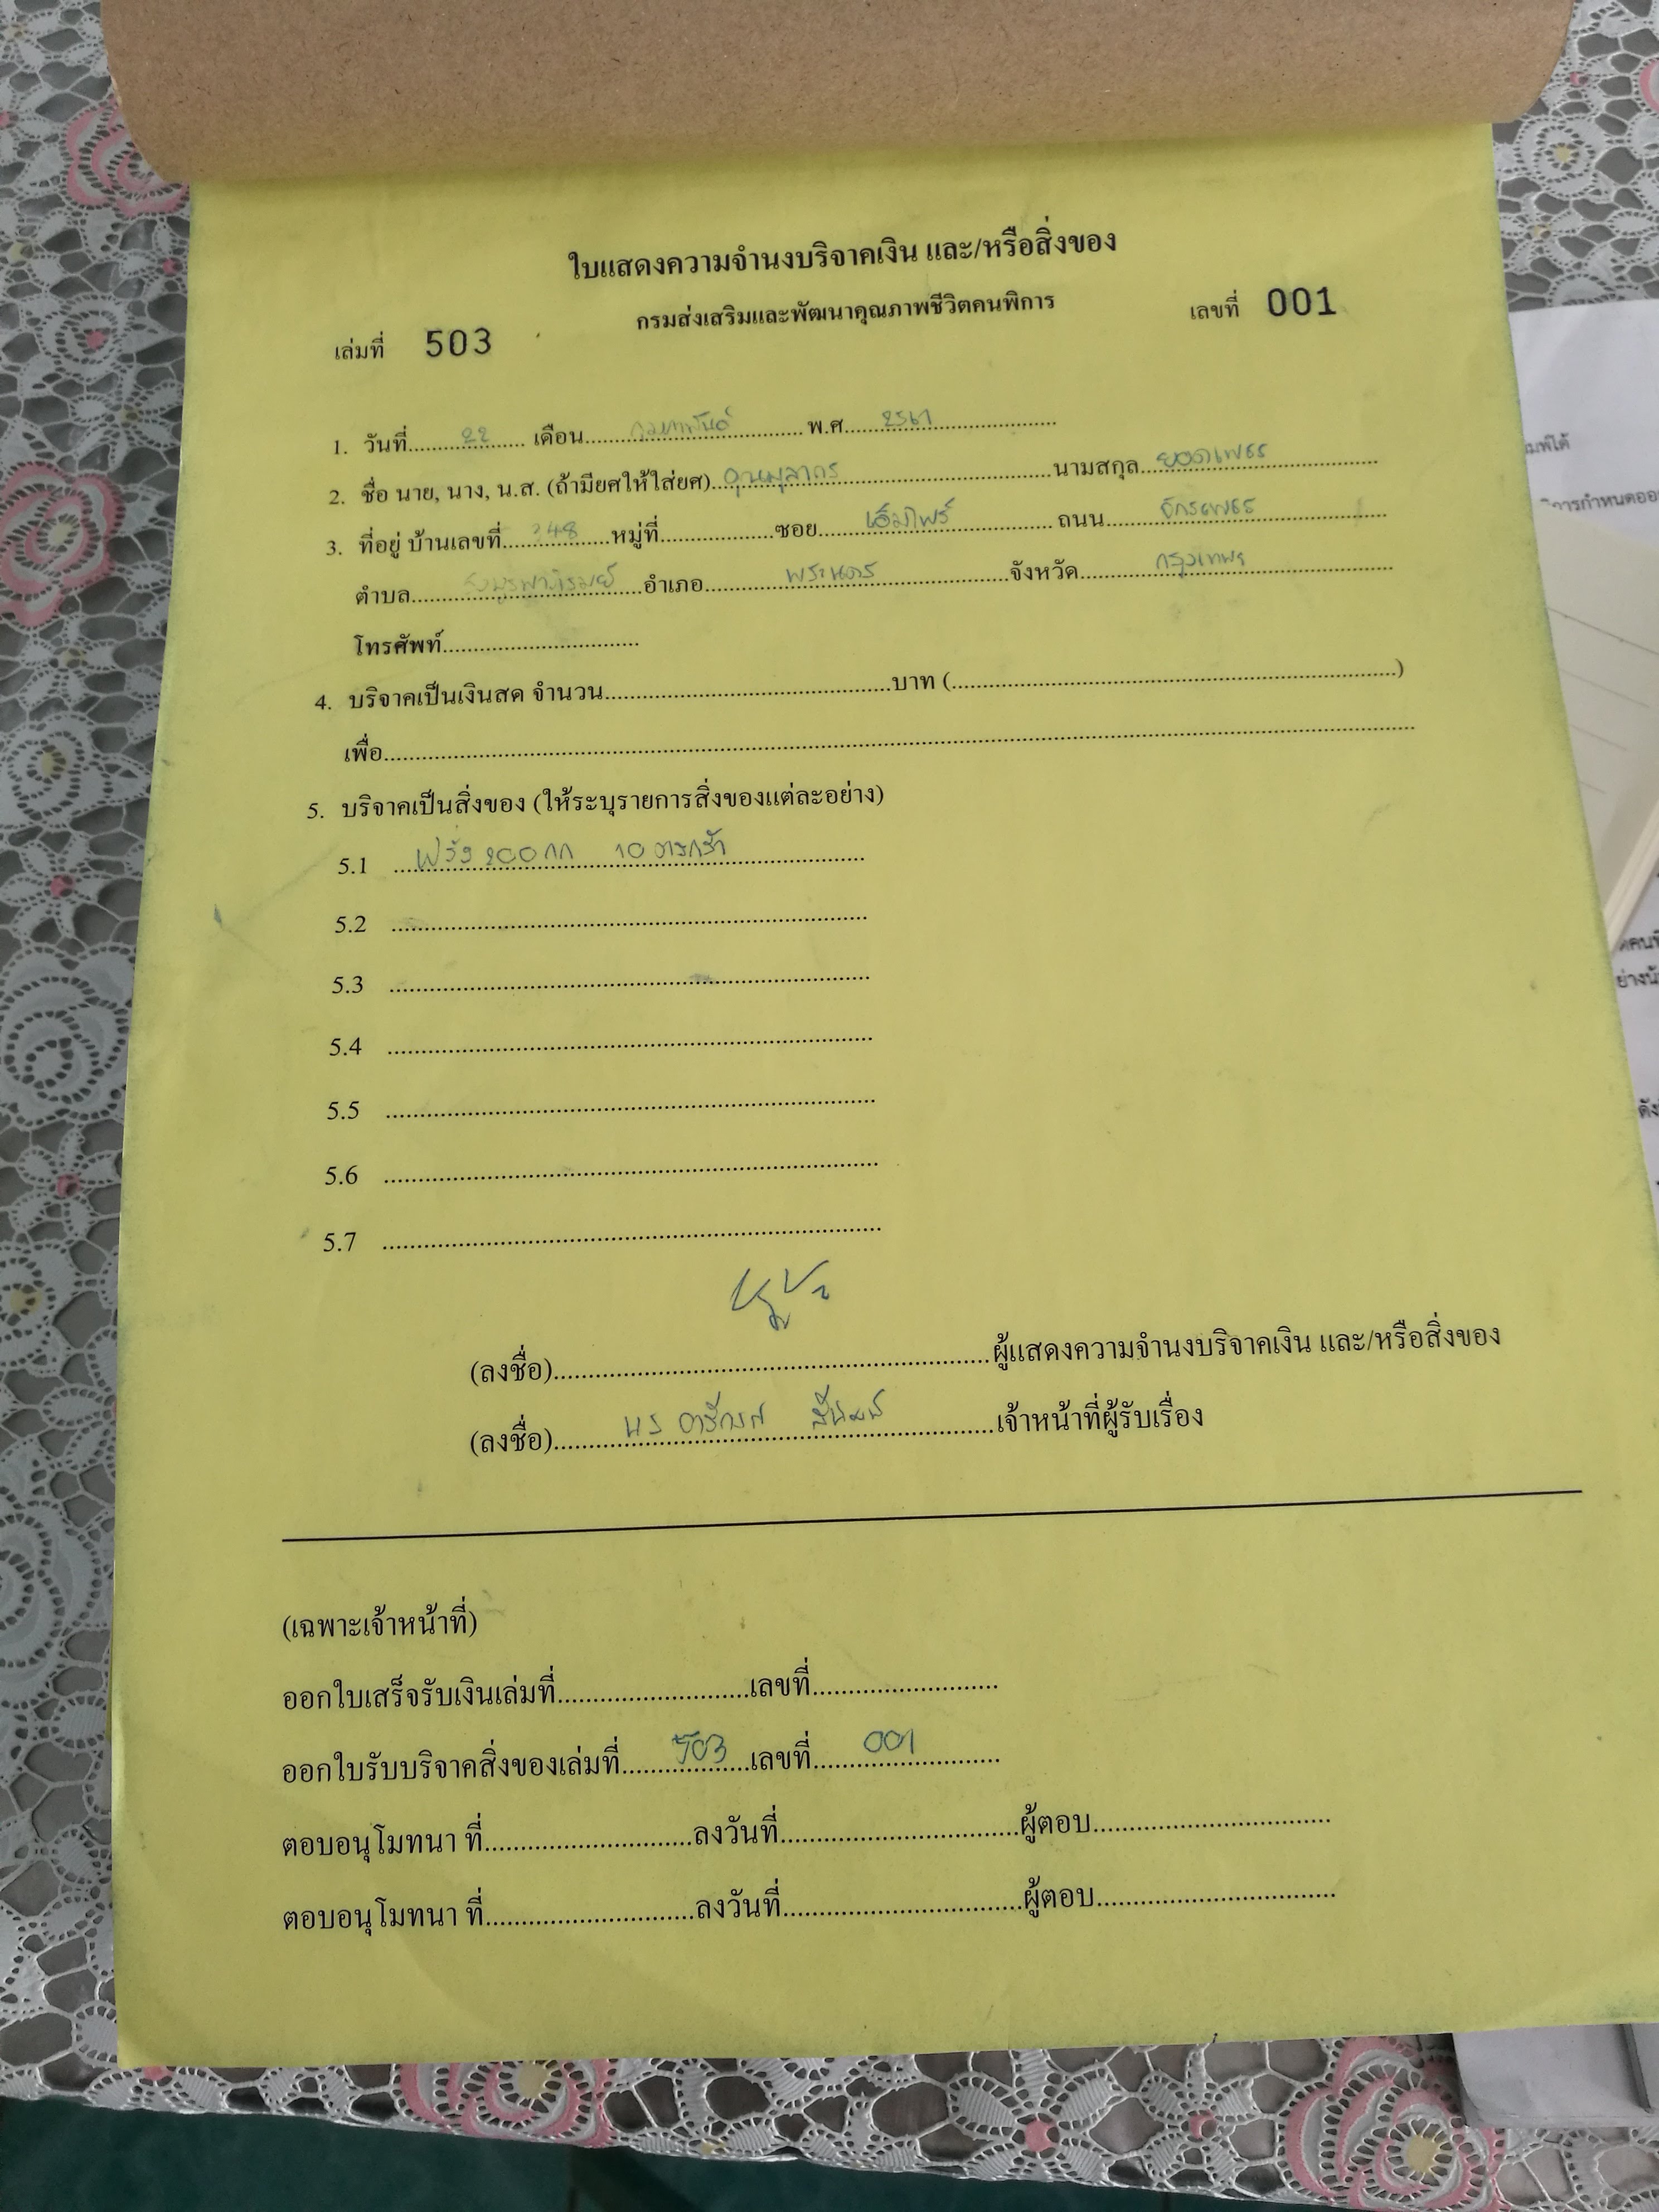 ใบแสดงความจำนงบริจาคเงิน และ/หรือสิ่งของ
กรมส่งเสริมและพัฒนาคุณภาพชีวิตคนพิการ
เล่มที่ 503 เลขที่ 001
1. วันที่ 22 เดือน กุมภาพันธ์ พ.ศ. 2567
2. ชื่อ นาย, นาง, น.ส. (ถ้ามียศให้ใส่ยศ) นามสกุล ยอดเพชร
3. ที่อยู่ บ้านเลขที่ 348 หมู่ที่ ซอย ถนน จักรเพชร
ตำบล วังบูรพาภิรมย์ อำเภอ พระนคร จังหวัด กรุงเทพฯ
โทรศัพท์
4. บริจาคเป็นเงินสด จำนวน บาท ( )
เพื่อ
5. บริจาคเป็นสิ่งของ (ให้ระบุรายการสิ่งของแต่ละอย่าง)
5.1 ฝรั่ง 200 กก 10 ตะกร้า
5.2
5.3
5.4
5.5
5.6
5.7
(ลงชื่อ) ผู้แสดงความจำนงบริจาคเงิน และ/หรือสิ่งของ
(ลงชื่อ) เจ้าหน้าที่ผู้รับเรื่อง
(เฉพาะเจ้าหน้าที่)
ออกใบเสร็จรับเงินเล่มที่ เลขที่
ออกใบรับบริจาคสิ่งของเล่มที่ 503 เลขที่ 001
ตอบอนุโมทนา ที่ ลงวันที่ ผู้ตอบ
ตอบอนุโมทนา ที่ ลงวันที่ ผู้ตอบ